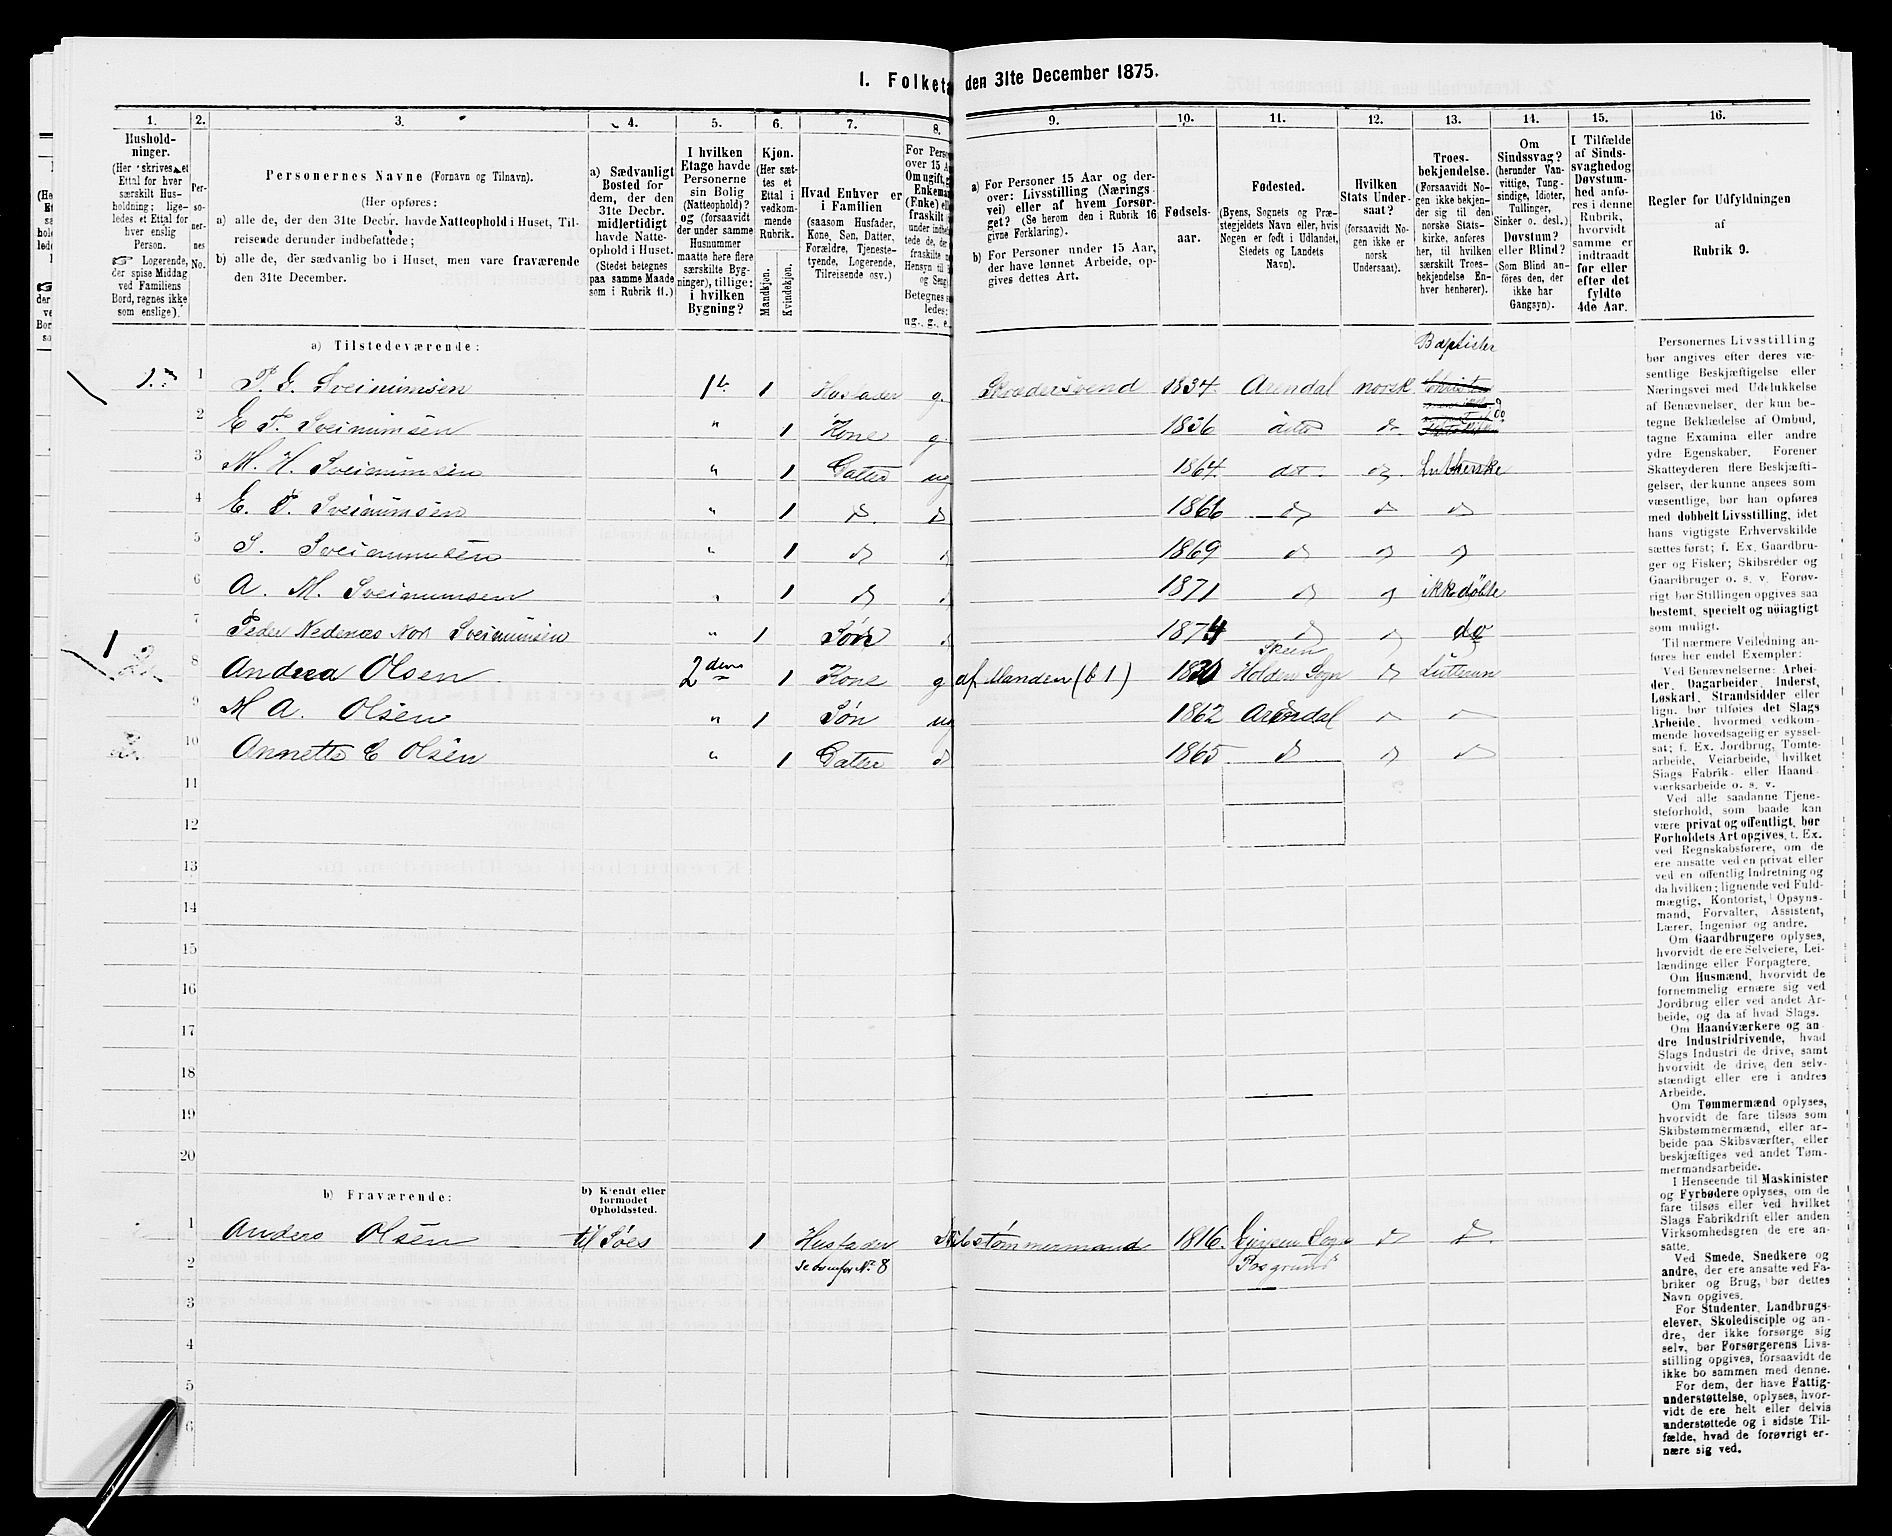 1. Folketæ den 31te December 1875.
1. 2. 3. 4. 5. 6. 7. 8. 9. 10. 11. 12. 13. 14. 15. 16.
Hushold-
ninger.
(Her skrives et
Ettal for hver
særskilt Hus-
holdning; lige-
ledes et Ettal for
hver enslig
Person.
☞ Logerende,
der spise Middag
ved Familiens
Bord, regnes ikke
som enslige).
Per-
so-
ner-
nes
No.
Personernes Navne (Fornavn og Tilnavn).
(Her opføres:
a) alle de, der den 31te Decbr. havde Natteophold i Huset, Til-
reisende derunder indbefattede;
b) alle de, der sædvanlig bo i Huset, men vare fraværende
den 31te December.
a) Sædvanligt
Bosted for
dem, der den
31te Decbr.
midlertidigt
havde Natte-
ophold i Huset.
(Stedet betegnes
paa samme Maade
som i Rubrik 11.)
I hvilken
Etage havde
Personerne
sin Bolig
(Natteophold)?
og (forsaavidt
der under samme
Husnummer
maatte høre flere
særskilte Byg-
ninger), tillige:
i hvilken
Bygning?
Kjøn.
(Her sæt-
tes et
Ettal i
vedkom-
mende
Rubrik.
Mandkjøn.
Kvindekjøn.
Hvad Enhver er
i Familien
(saasom Husfader,
Kone, Søn, Datter,
Forældre, Tjeneste-
tyende, Logerende,
Tilreisende osv.)
For Perso
over 15 Aa
Om ugift, g
Enkeman
(Enke) elle
fraskilt
Betegnes s
ledes:
ug., g., e.
a) For Personer 15 Aar og der-
over: Livsstilling (Nærings
vei) eller af hvem forsør-
get? (Se herom den i Rubrik 16
givne Forklaring).
b) For Personer under 15 Aar,
der have lønnet Arbeide, op-
gives dettes Art.
Fødsels-
aar.
Fødested.
(Byens, Sognets og Præ-
stegjeldets Navn eller, hvis
Nogen er født i Udlandet,
Stedets og Landets
Navn).
Hvilken
Stats Under-
saat?
(forsaavidt No-
gen ikke er
norsk
Undersaat).
Troes-
bekjendelse.
(Forsaavidt No-
gen ikke bekjen-
der sig til den
norske Stats-
kirke, anføres
her, til hvilken
særskilt Troes-
bekjendelse En-
hver henhører).
Om
Sindssvag?
(herunder Van-
vittige, Tung-
sindige, Idioter,
Tullinger,
Sinker o. desl.)
Døvstum?
eller Blind?
(Som Blind an-
føres den, der
ikke har
Gangsyn).
I Tilfælde
af Sinds-
svaghed og
Døvstum-
hed anfø-
res i denne
Rubrik,
hvorvidt
samme er
indtraadt
før eller
efter det
fyldte
4de Aar.
Regler for Udfyldningen
af
Rubrik 9.
a) Tilstedeværende:
Baptister
1. 1 P. G. Sveinumsen 1 1 Husfader g. Skrædersvend 1834 Arendal norsk
2 E P. Sveinumsen " 1 Kone g 1836 ditto do do
3 M. H. Sveinumsen " 1 Datter ug 1864 dto do Lutherske
4 E. P. Sveinumsen " 1 do do 1866 do do do
5 S. Sveinumsen " 1 do do 1869 do do do
6 A. M. Sveinumsen " 1 do do 1871 do do ikke døbte
7 Peder Nedenæs Nor Sveinumsen " 1 Søn do 1874 do do do
Skeen
1 8 Andrea Olsen 2den 1 Kone g af Manden (b 1) 1830 Holden Sogn do Luthran
9 M A. Olsen " 1 Søn ug 1862 Arendal do do
2. 10 Annette E Olsen " 1 Datter do 1865 do do do
11
12
13
14
15
16
17
18
19
20
b) Fraværende:
b) Kjendt eller
formodet
Opholdssted.
1 Anders Olsen til Søes 1 Husfader Skibstømmermand 1816 Gjerpen Sogn do do
2 se ovenfor No 8 Porsgrund
3
4
5
6
Personernes Livsstilling
bør angives efter deres væ-
sentlige Beskjæftigelse eller
Næringsvei med Udelukkelse
af Benævnelser, der kun be-
tegne Beklædelse af Ombud,
tagne Examina eller andre
ydre Egenskaber. Forener
Skatteyderen flere Beskjæfti-
gelser, der kunne ansees som
væsentlige, bør han opføres
med dobbelt Livsstilling, idet
hans vigtigste Erhvervskilde
sættes først; f. Ex. Gaardbru-
ger og Fisker; Skibsreder og
Gaardbruger o. s. v. Forøv-
rigt bør Stillingen opgives saa
bestemt, specielt og nøiagtigt
som muligt.
Til nærmere Veiledning an-
føres her endel Exempler:
Ved Benævnelserne: Arbei-
der, Dagarbeider, Inderst,
Løskarl, Strandsidder eller
lign. bør tilføies det Slags
Arbeide, hvormed vedkom-
mende hovedsagelig er syssel-
sat; f. Ex. Jordbrug, Tomte-
arbeide, Veiarbeide, hvilket
Slags Fabrik- eller Haand-
værksarbeide o. s. v.
Ved alle saadanne Tjene-
steforhold, som baade kan
være privat og offentligt, bør
Forholdets Art opgives, t. Ex.
ved Regnskabsførere, om de
ere ansatte ved en privat eller
ved en offentlig Indretning og
da hvilken; lignende ved Fuld-
mægtig, Kontorist, Opsyns-
mand, Forvalter, Assistent,
Lærer, Ingeniør og andre.
Om Gaardbrugere oplyses,
hvorvidt de ere Selveiere, Lei-
lændinge eller Forpagtere.
Om Husmænd, hvorvidt de
fornemmelig ernære sig ved
Jordbrug eller ved andet Ar-
beide, og da af hvad Slags.
Om Haandværkere og an-
dre Industridrivende, hvad
Slags Industri de drive, samt
hvorvidt de drive den selv-
stændigt eller ere i andres
Arbeide.
Om Tømmermænd oplyses,
hvorvidt de fare tilsøs som
Skibstømmermænd, eller ar-
beide paa Skibsværfter, eller
beskjæftiges ved andet Tøm-
mermandsarbeide.
I Henseende til Maskinister
og Fyrbødere oplyses, om de
fare tilsøs eller ved hvilket
Slags Fabrikdrift eller anden
Virksomhedsgren de ere an-
satte.
Ved Smede, Snedkere og
andre, der ere ansatte ved Fa-
briker og Brug, bør dettes
Navn opgives.
For Studenter, Landbrugs-
elever, Skoledisciple og an-
dre, der ikke forsørge sig
selv, bør Forsørgerens Livs-
stilling opgives, forsaavidt de
ikke bo sammen med denne.
For dem, der have Fattig-
understøttelse, oplyses, hvor-
vidt de ere helt eller delvis
understøttede og i sidste Til-
fælde, hvad de forøvrigt er-
nære sig ved.